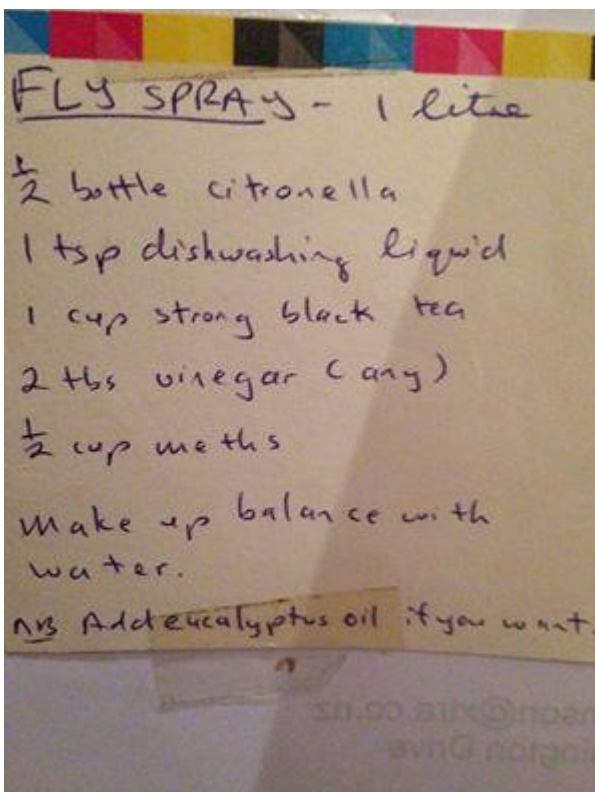 FLY SPRAY - 1 litre
½ bottle citronella
1 tsp dishwashing liquid
1 cup strong black tea
2 tbs vinegar (any)
½ cup meths
make up balance with
water.
NB Add eucalyptus oil if you want.
nson@xtra.co.nz
ington Drive